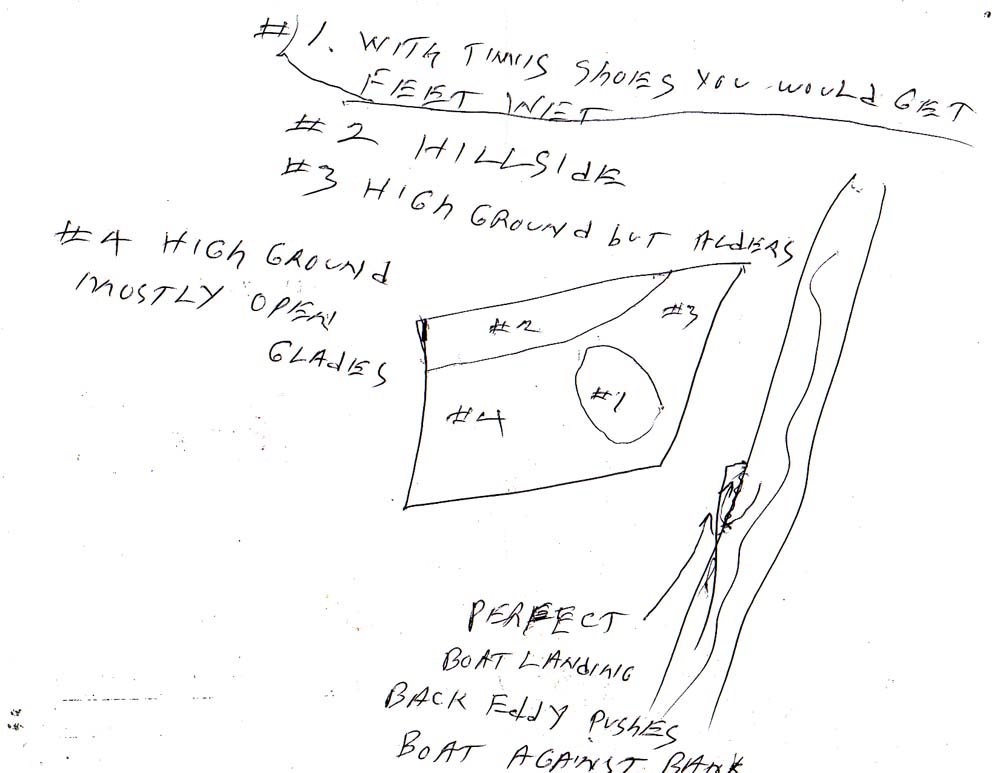 #1. WITH TINNIS SHOES YOU WOULD GET
FEET WET
#2 HILLSIDE
#3 HIGH GROUND BUT ALDERS
#4 HIGH GROUND
MOSTLY OPEN
GLADES
#2
#3
#1
#4
PERFECT
BOAT LANDING
BACK EDDY PUSHES
BOAT AGAINST BANK